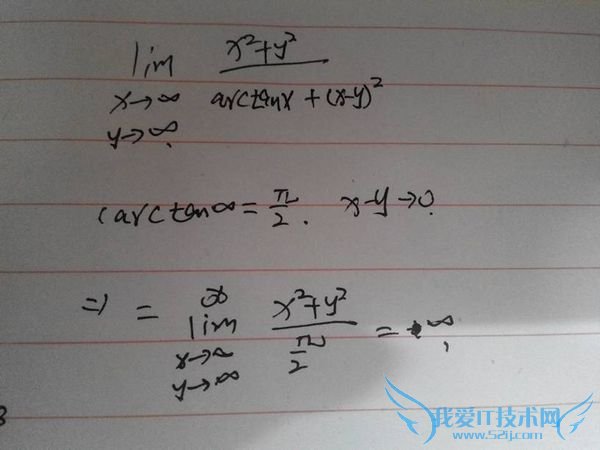 lim x²+y²
x→∞ arctanx + (x-y)²
y→∞.
(arctan∞ = π/2. x-y→0.
=) = ∞ lim x²+y² / π/2 = +∞,
x→∞
y→∞
3
我爱IT技术网
www.52ij.com